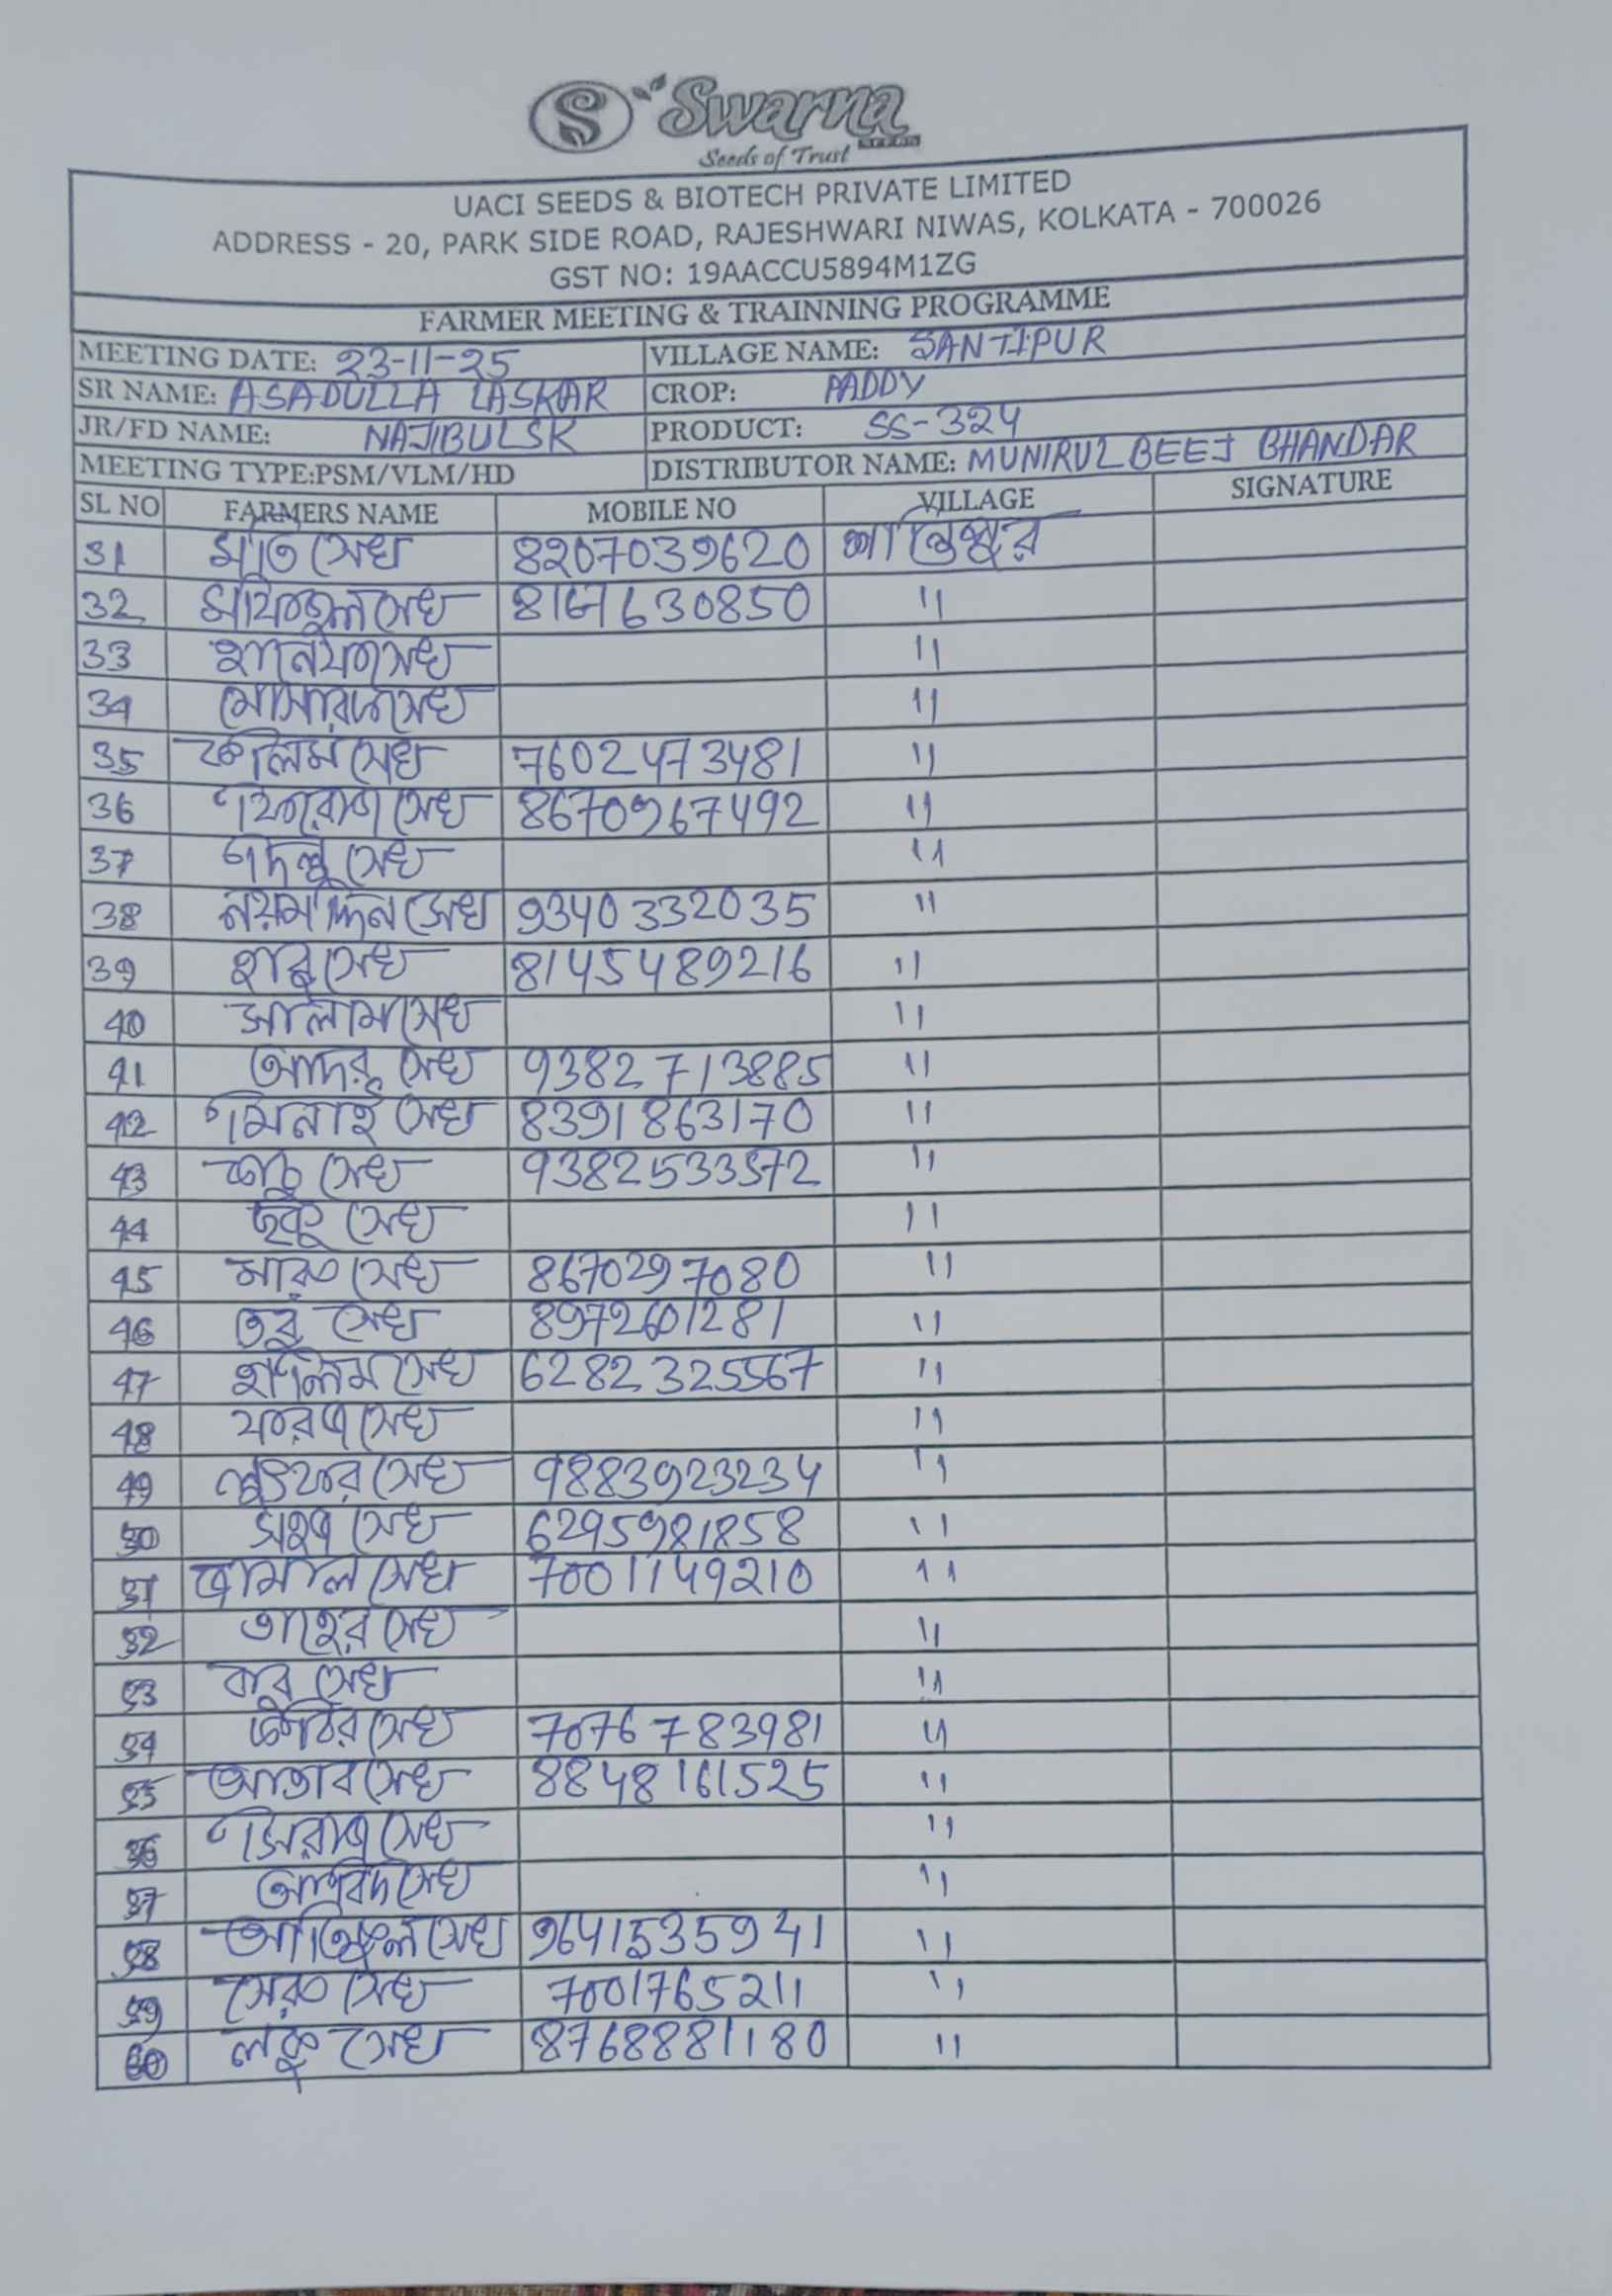 Swarna
SEEDS
Seeds of Trust
UACI SEEDS & BIOTECH PRIVATE LIMITED
ADDRESS - 20, PARK SIDE ROAD, RAJESHWARI NIWAS, KOLKATA - 700026
GST NO: 19AACCU5894M1ZG
FARMER MEETING & TRAINNING PROGRAMME
MEETING DATE: 23-11-25 VILLAGE NAME: SANTIPUR
SR NAME: ASADULLA LASKAR CROP: PADDY
JR/FD NAME: NAJIBUL SK PRODUCT: SS-324
MEETING TYPE:PSM/VLM/HD DISTRIBUTOR NAME: MUNIRUL BEEJ BHANDAR
SL NO FARMERS NAME MOBILE NO VILLAGE SIGNATURE
31 মতি সেখ 8207039620 শান্তিপুর
32 সেখ 630850 "
33 সেখ "
34 সেখ "
35 কালিম সেখ 7602473481 "
36 ফিরোজ সেখ 8670967492 "
37 দিলু সেখ "
38 নয়মদ্দিন সেখ 9340332035 "
39 হাবু সেখ 8145489216 "
40 সালাম সেখ "
41 আদরু সেখ 9382713885 "
42 মিনাই সেখ 8391863170 "
43 সেখ 9382533572 "
44 সেখ "
45 মারু সেখ 8670297080 "
46 সেখ 8972601281 "
47 হালিম সেখ 6282325567 "
48 ফারজ সেখ "
49 লুৎফার সেখ 9883923234 "
50 সেখ 6295981858 "
51 জামাল সেখ 7001149210 "
52 তাহের সেখ "
53 বাবু সেখ "
54 সেখ 7076783981 "
55 আতাব সেখ 8848161525 "
56 সিরাজ সেখ "
57 আবিদ সেখ "
58 সেখ 9641535941 "
59 সেরু সেখ 7001765211 "
60 লকু সেখ 8768881180 "